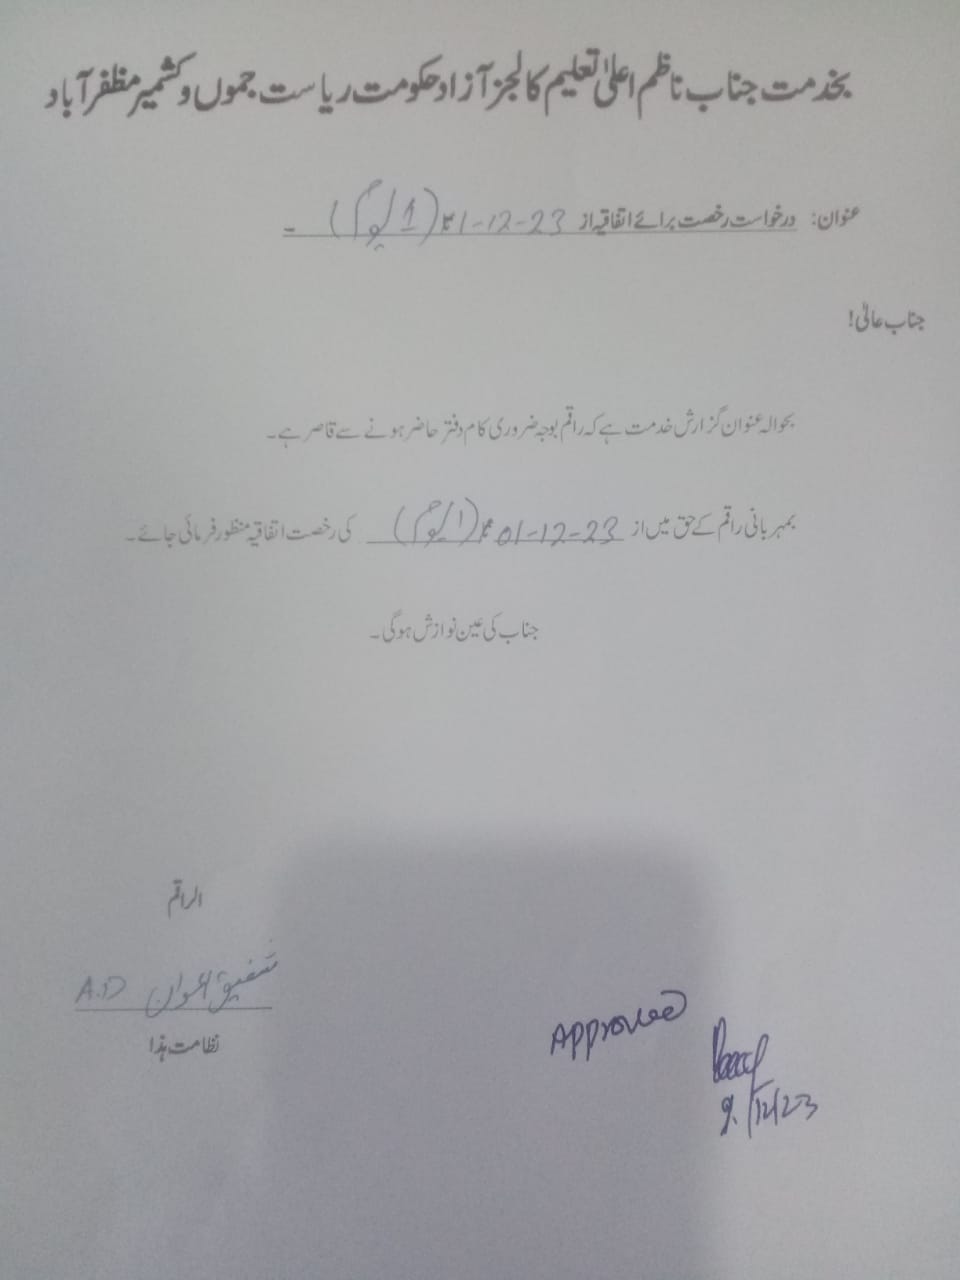 بخدمت جناب ناظم اعلیٰ تعلیم کالجز آزاد حکومت ریاست جموں و کشمیر مظفرآباد
عنوان: درخواست رخصت برائے اتفاقیہ از 1-12-23 تا (1 یوم) ۔
جناب عالی!
بحوالہ عنوان گزارش خدمت ہے کہ راقم بوجہ ضروری کام دفتر حاضر ہونے سے قاصر ہے۔
بمہربانی راقم کے حق میں از 01-12-23 تا (1 یوم) کی رخصت اتفاقیہ منظور فرمائی جائے۔
جناب کی عین نوازش ہوگی۔
الراقم
شفیق اعوان A.D
نظامت ہذا
Approved
/12/23